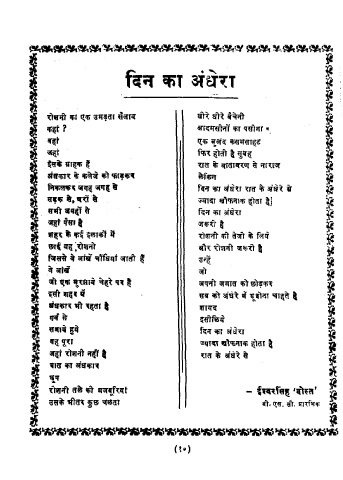 दिन का अंधेरा
रोशनी का एक उमड़ता सैलाब
कहां ?
वहां
जहां
इसके ग्राहक हैं
अंधकार के कलेजे को फाड़कर
निकलकर जगह जगह से
सड़क से, घरों से
सभी जगहों से
जहां पैसा है
शहर के कई इलाकों में
छाई यह रोशनी
जिससे वे आंखें चौंधिया जाती हैं
वे आंखें
जो एक मुरझाये चेहरे पर हैं
इसी शहर में
अंधकार भी रहता है
गर्व से
समाये हुये
वह पूरा
जहां रोशनी नहीं है
रात का अंधकार
चुप
रोशनी तले की मजबूरियां
उसके भीतर कुछ चलता
धीरे धीरे बेचैनी
आदमसीनों का पसीना
एक बुलंद कसमसाहट
फिर होती है सुबह
रात के वातावरण से नाराज
लेकिन
दिन का अंधेरा रात के अंधेरे से
ज्यादा खौफनाक होता है
दिन का अंधेरा
जरूरी है
रोशनी की तेजी के लिये
और रोशनी जरूरी है
उन्हें
जो
अपनी जमात को छोड़कर
सब को अंधेरे में डुबोना चाहते हैं
शायद
इसीलिये
दिन का अंधेरा
ज्यादा खौफनाक होता है
रात के अंधेरे से
— ईश्वरसिंह 'दोस्त'
बी. एस. सी. प्रारंभिक
(१०)